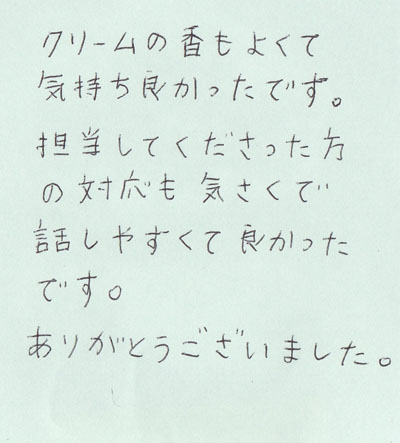 クリームの香もよくて
気持ち良かったです。
担当してくださった方
の対応も気さくで
話しやすくて良かった
です。
ありがとうございました。